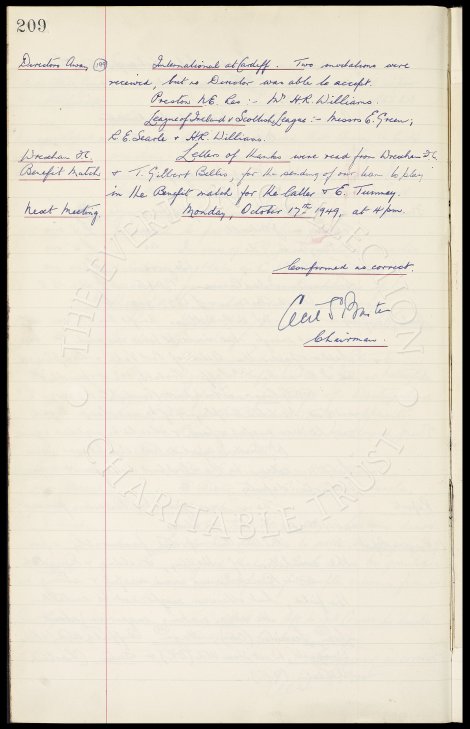 209
Directors Away 109 International at Cardiff. Two invitations were
received, but no Director was able to accept.
Preston N.E. Res :- Mr H.R. Williams.
League of Ireland v Scottish League :- Messrs E. Green,
R.E. Searle & H.R. Williams.
Wrexham F.C. Letters of thanks were read from Wrexham F.C.
Benefit Match & T. Gilbert Bellis, for the sending of our team to play
in the Benefit match for the latter & E. Tunney.
Next Meeting. Monday, October 17th 1949, at 4 pm.
Confirmed as correct.
Cecil S. Baxter
Chairman.
THE EVERTON COLLECTION
CHARITABLE TRUST